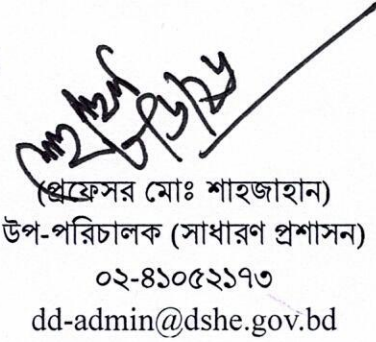 (প্রফেসর মোঃ শাহজাহান)
উপ-পরিচালক (সাধারণ প্রশাসন)
০২-৪১০৫২১৭৩
dd-admin@dshe.gov.bd